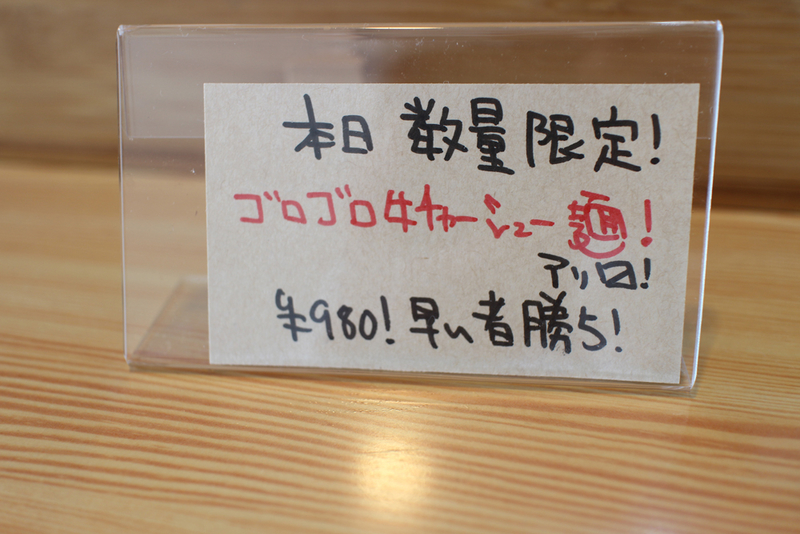 本日 数量限定!
ゴロゴロ牛チャーシュー麺!
アリ〼!
¥980! 早い者勝ち!